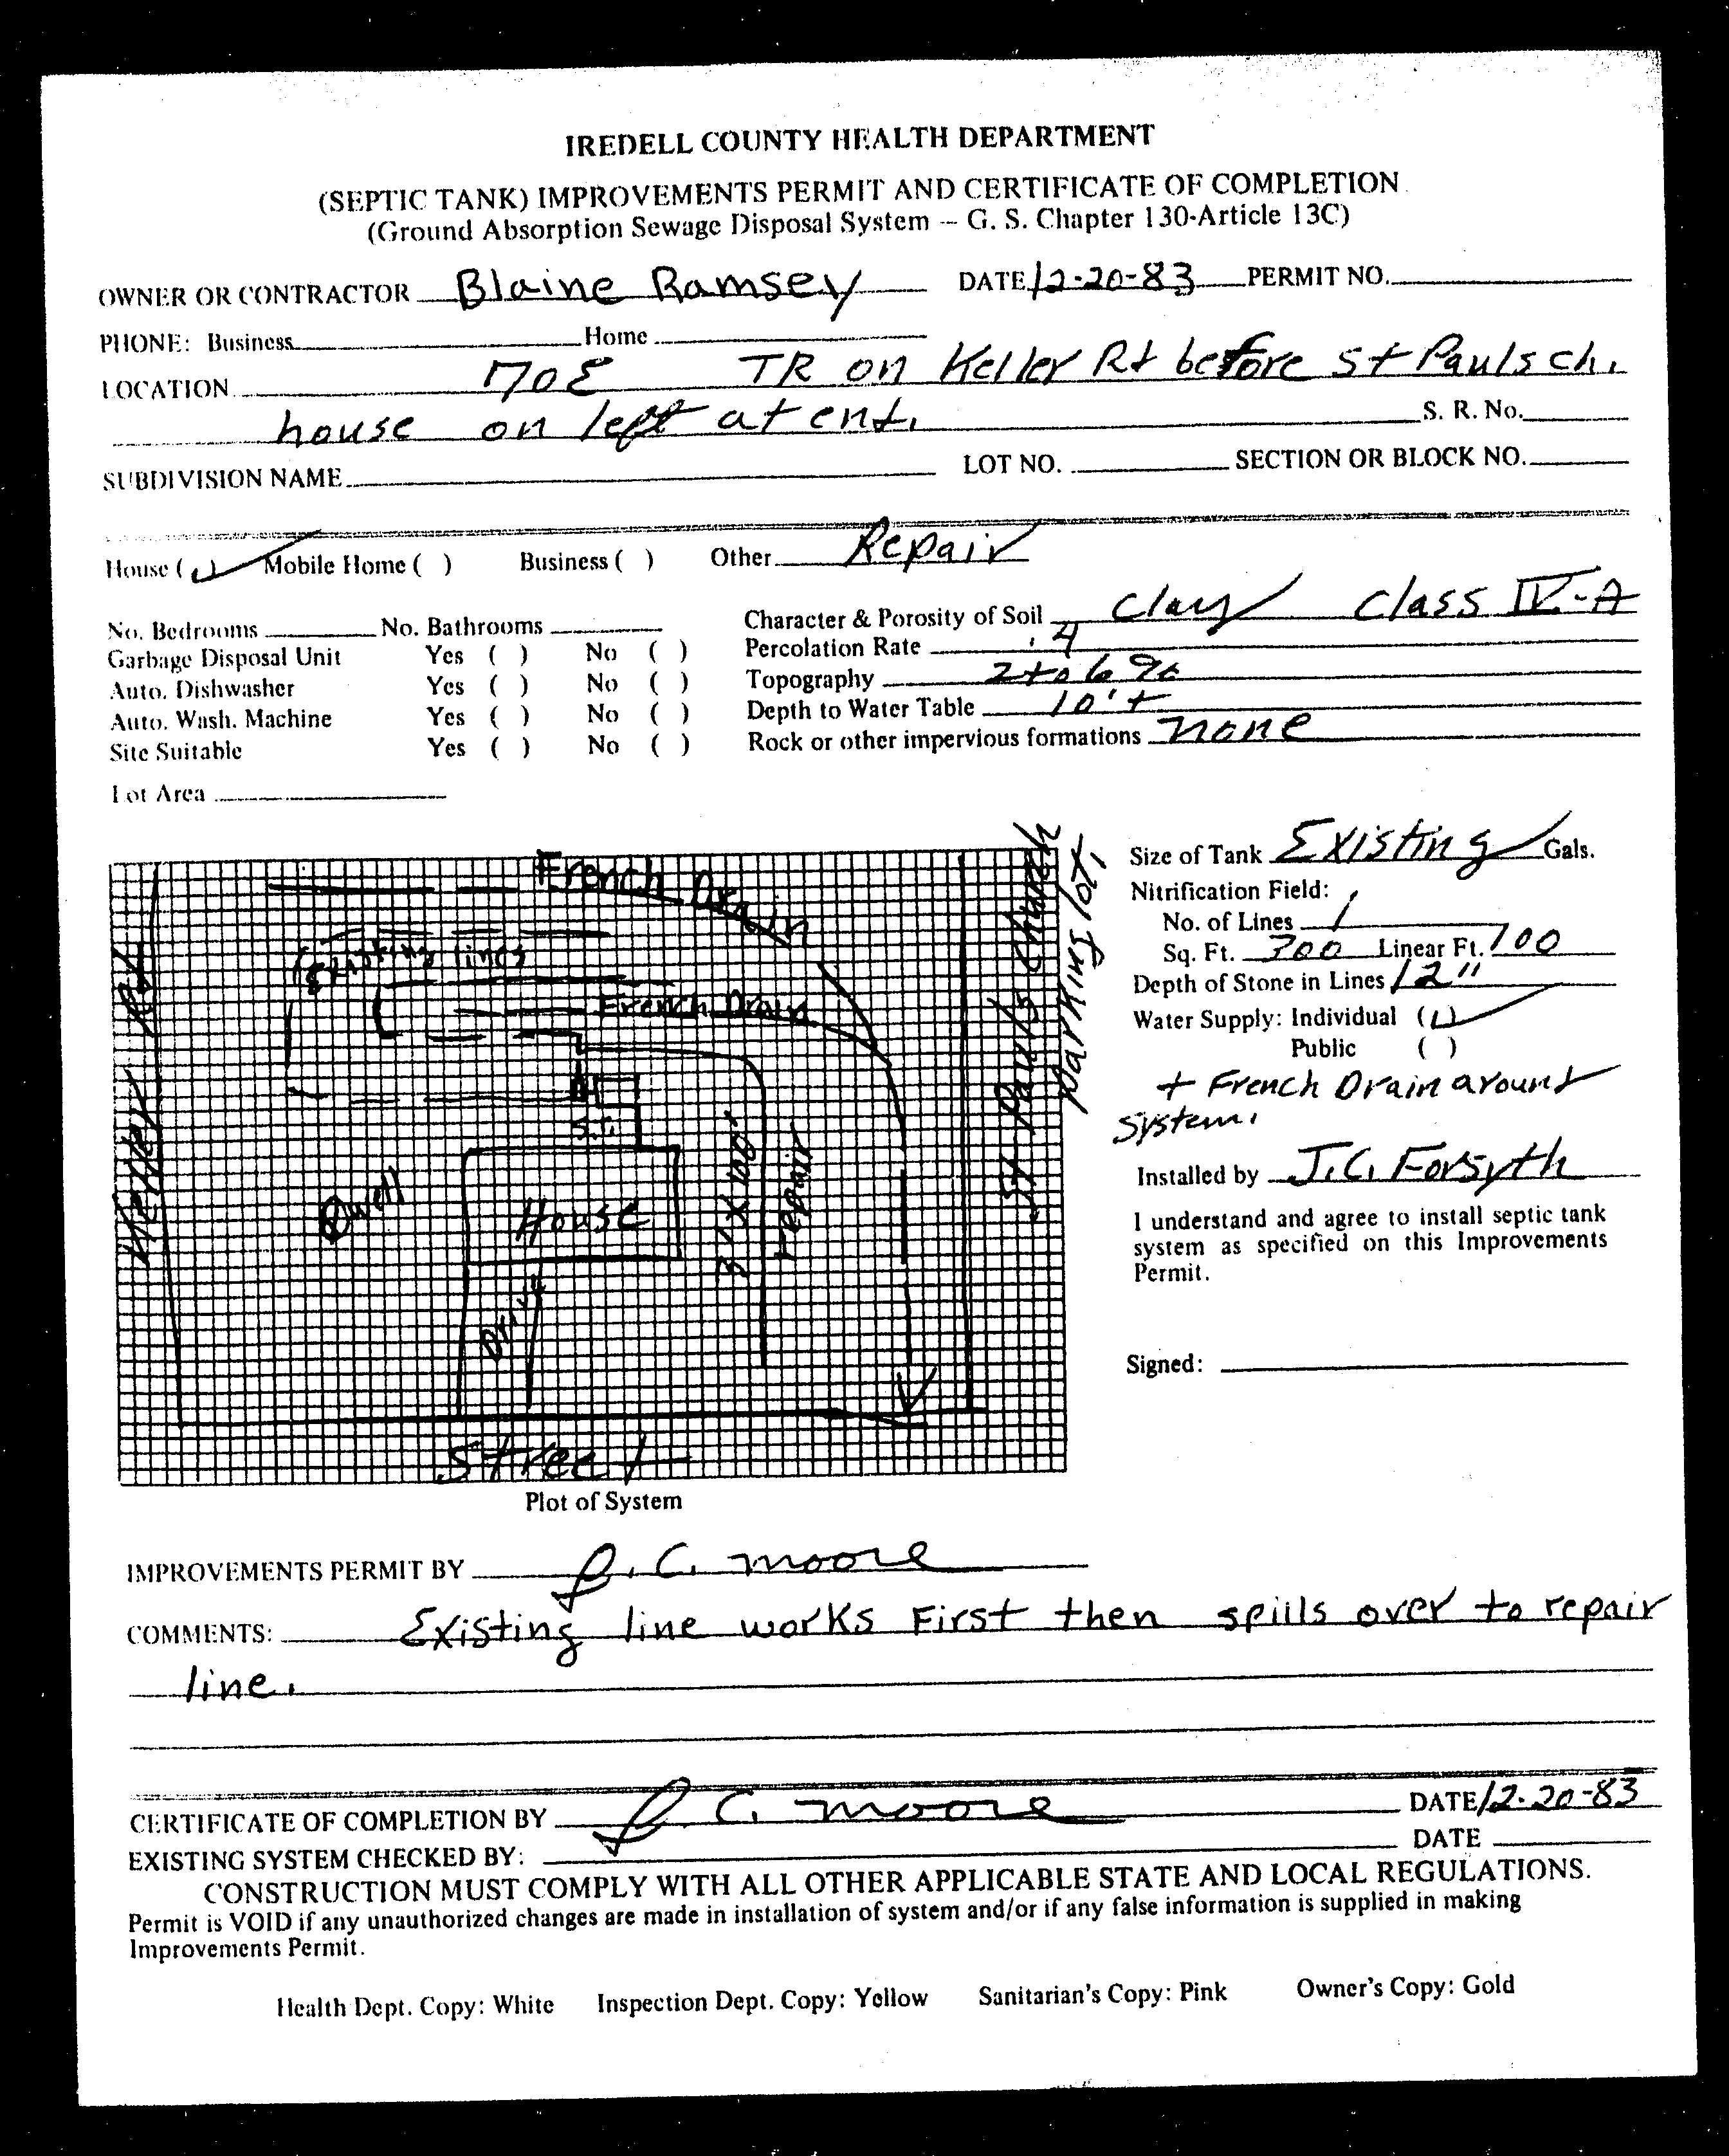 IREDELL COUNTY HEALTH DEPARTMENT
(SEPTIC TANK) IMPROVEMENTS PERMIT AND CERTIFICATE OF COMPLETION
(Ground Absorption Sewage Disposal System -- G. S. Chapter 130-Article 13C)
OWNER OR CONTRACTOR Blaine Ramsey DATE 12-20-83 PERMIT NO.
PHONE: Business Home
LOCATION 70E TR on Keller Rd before St Pauls ch.
house on left at end. S. R. No.
SUBDIVISION NAME LOT NO. SECTION OR BLOCK NO.
House (✓) Mobile Home ( ) Business ( ) Other Repair
No. Bedrooms No. Bathrooms
Garbage Disposal Unit Yes ( ) No ( )
Auto. Dishwasher Yes ( ) No ( )
Auto. Wash. Machine Yes ( ) No ( )
Site Suitable Yes ( ) No ( )
Lot Area
Character & Porosity of Soil Clay Class IV-A
Percolation Rate .4
Topography 2 to 6 %
Depth to Water Table 10'+
Rock or other impervious formations none
French Drain
Existing lines
French Drain
S.T.
House
well
Drive
3' X 100'
repair
Keller Rd
St Pauls Church
Parking lot,
Street
Plot of System
Size of Tank Existing Gals.
Nitrification Field:
No. of Lines 1
Sq. Ft. 300 Linear Ft. 100
Depth of Stone in Lines 12"
Water Supply: Individual (✓)
Public ( )
+ French Drain around
system.
Installed by J.C. Forsyth
I understand and agree to install septic tank
system as specified on this Improvements
Permit.
Signed:
IMPROVEMENTS PERMIT BY J. C. Moore
COMMENTS: Existing line works First then spills over to repair
line.
CERTIFICATE OF COMPLETION BY J. C. Moore DATE 12-20-83
EXISTING SYSTEM CHECKED BY: DATE
CONSTRUCTION MUST COMPLY WITH ALL OTHER APPLICABLE STATE AND LOCAL REGULATIONS.
Permit is VOID if any unauthorized changes are made in installation of system and/or if any false information is supplied in making
Improvements Permit.
Health Dept. Copy: White Inspection Dept. Copy: Yellow Sanitarian's Copy: Pink Owner's Copy: Gold